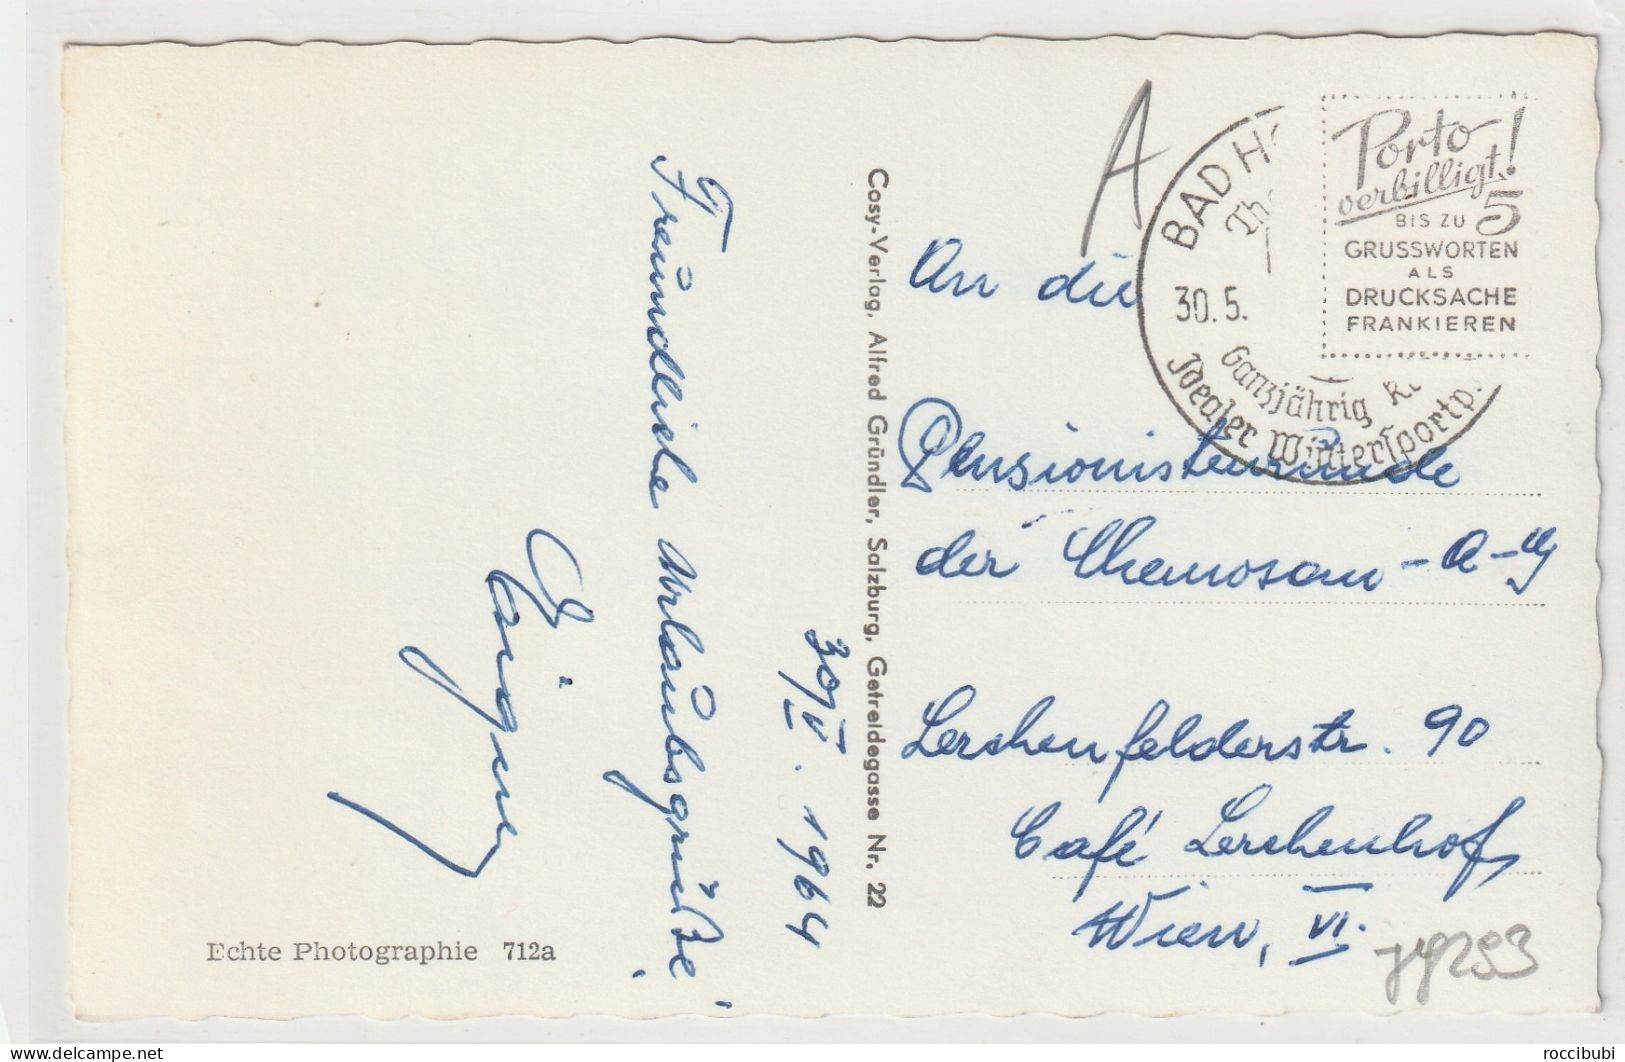 Freundliche Urlaubsgrüße!
30/V. 1964
Echte Photographie 712a
Cosy-Verlag, Alfred Gründler, Salzburg, Getreidegasse Nr. 22
A
BAD H
Th
30.5.
Ganzjährig K
Idealer Wintersportp.
Porto
verbilligt!
BIS ZU 5
GRUSSWORTEN
ALS
DRUCKSACHE
FRANKIEREN
An die
Pensionistenrunde
der Chemosan-A-G
Lerchenfelderstr. 90
Café Lerchenhof
Wien, VI.
roccibubi